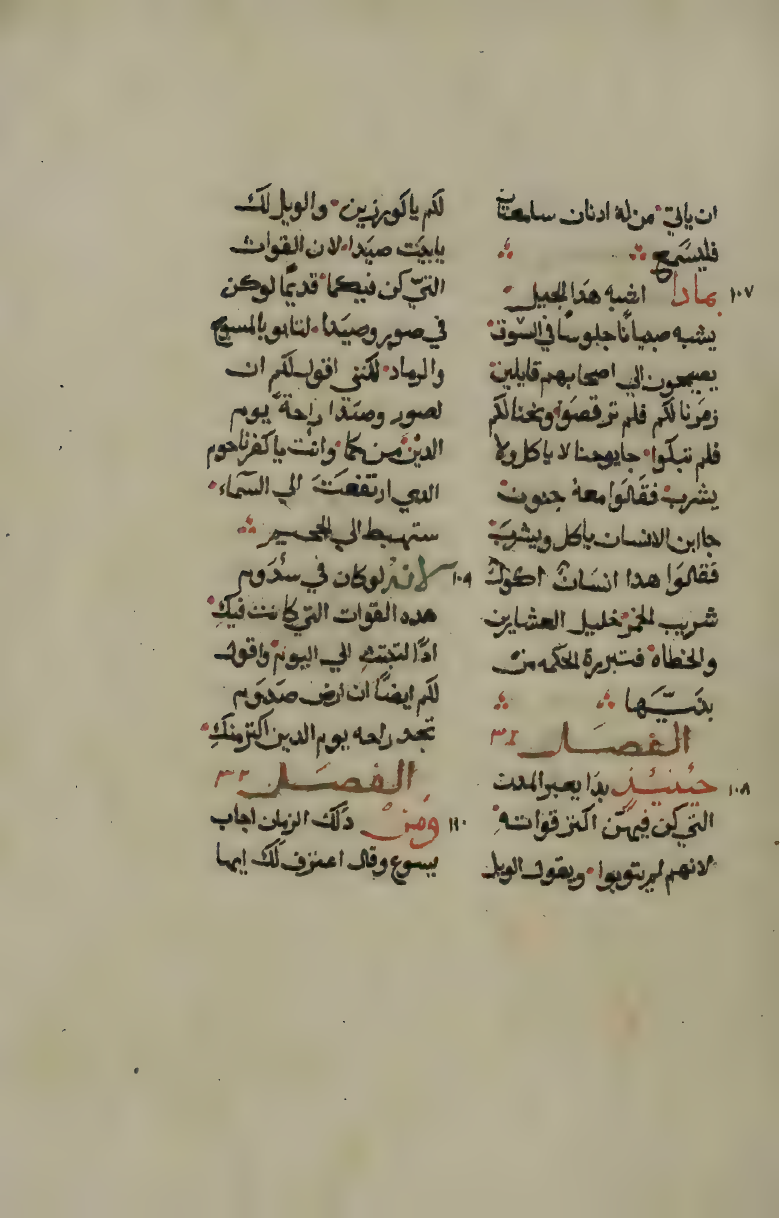 ان ياتي من له ادنان سامعتان
فليسمع
١٠٧ بمادا اشبه هدا الجيل
يشبه صبيانًا جلوسًا في السوق
يصيحون الي اصحابهم قايلين
زمرنا لكم فلم ترقصوا ونحنا لكم
فلم تبكوا جا يوحنا لا ياكل ولا
يشرب فقالوا معه جنون
جا ابن الانسان ياكل ويشرب
فقالوا هدا انسان اكول
شريب للخمر خليل العشارين
والخطاه فتبررة الحكمه من
بنيها
الفصل ٣١
١٠٨ حينيذٍ بدا يعير المدن
التي كن فيهن اكثر قواته
لانهم لم يتوبوا ويقول الويل
لكم يا كورزين والويل لك
يا بيت صيدا لان القوات
التي كن فيكما قديمًا لو كن
في صور وصيدا لتابو بالمسوح
والرماد لكنني اقول لكم ان
لصور وصيدا راحة يوم
الدين منكما وانت يا كفرناحوم
الدي ارتفعت الي السماء
ستهبط الي الجحيم
١٠٩ لانه لو كان في سدوم
هده القوات التي كانت فيك
ادًا لتبتت الي اليوم واقول
لكم ايضًا ان ارض صدوم
تجد راحه يوم الدين اكثر منكِ
الفصل ٣٢
١١٠ ومن دلك الزمان اجاب
يسوع وقال اعترف لك ايها